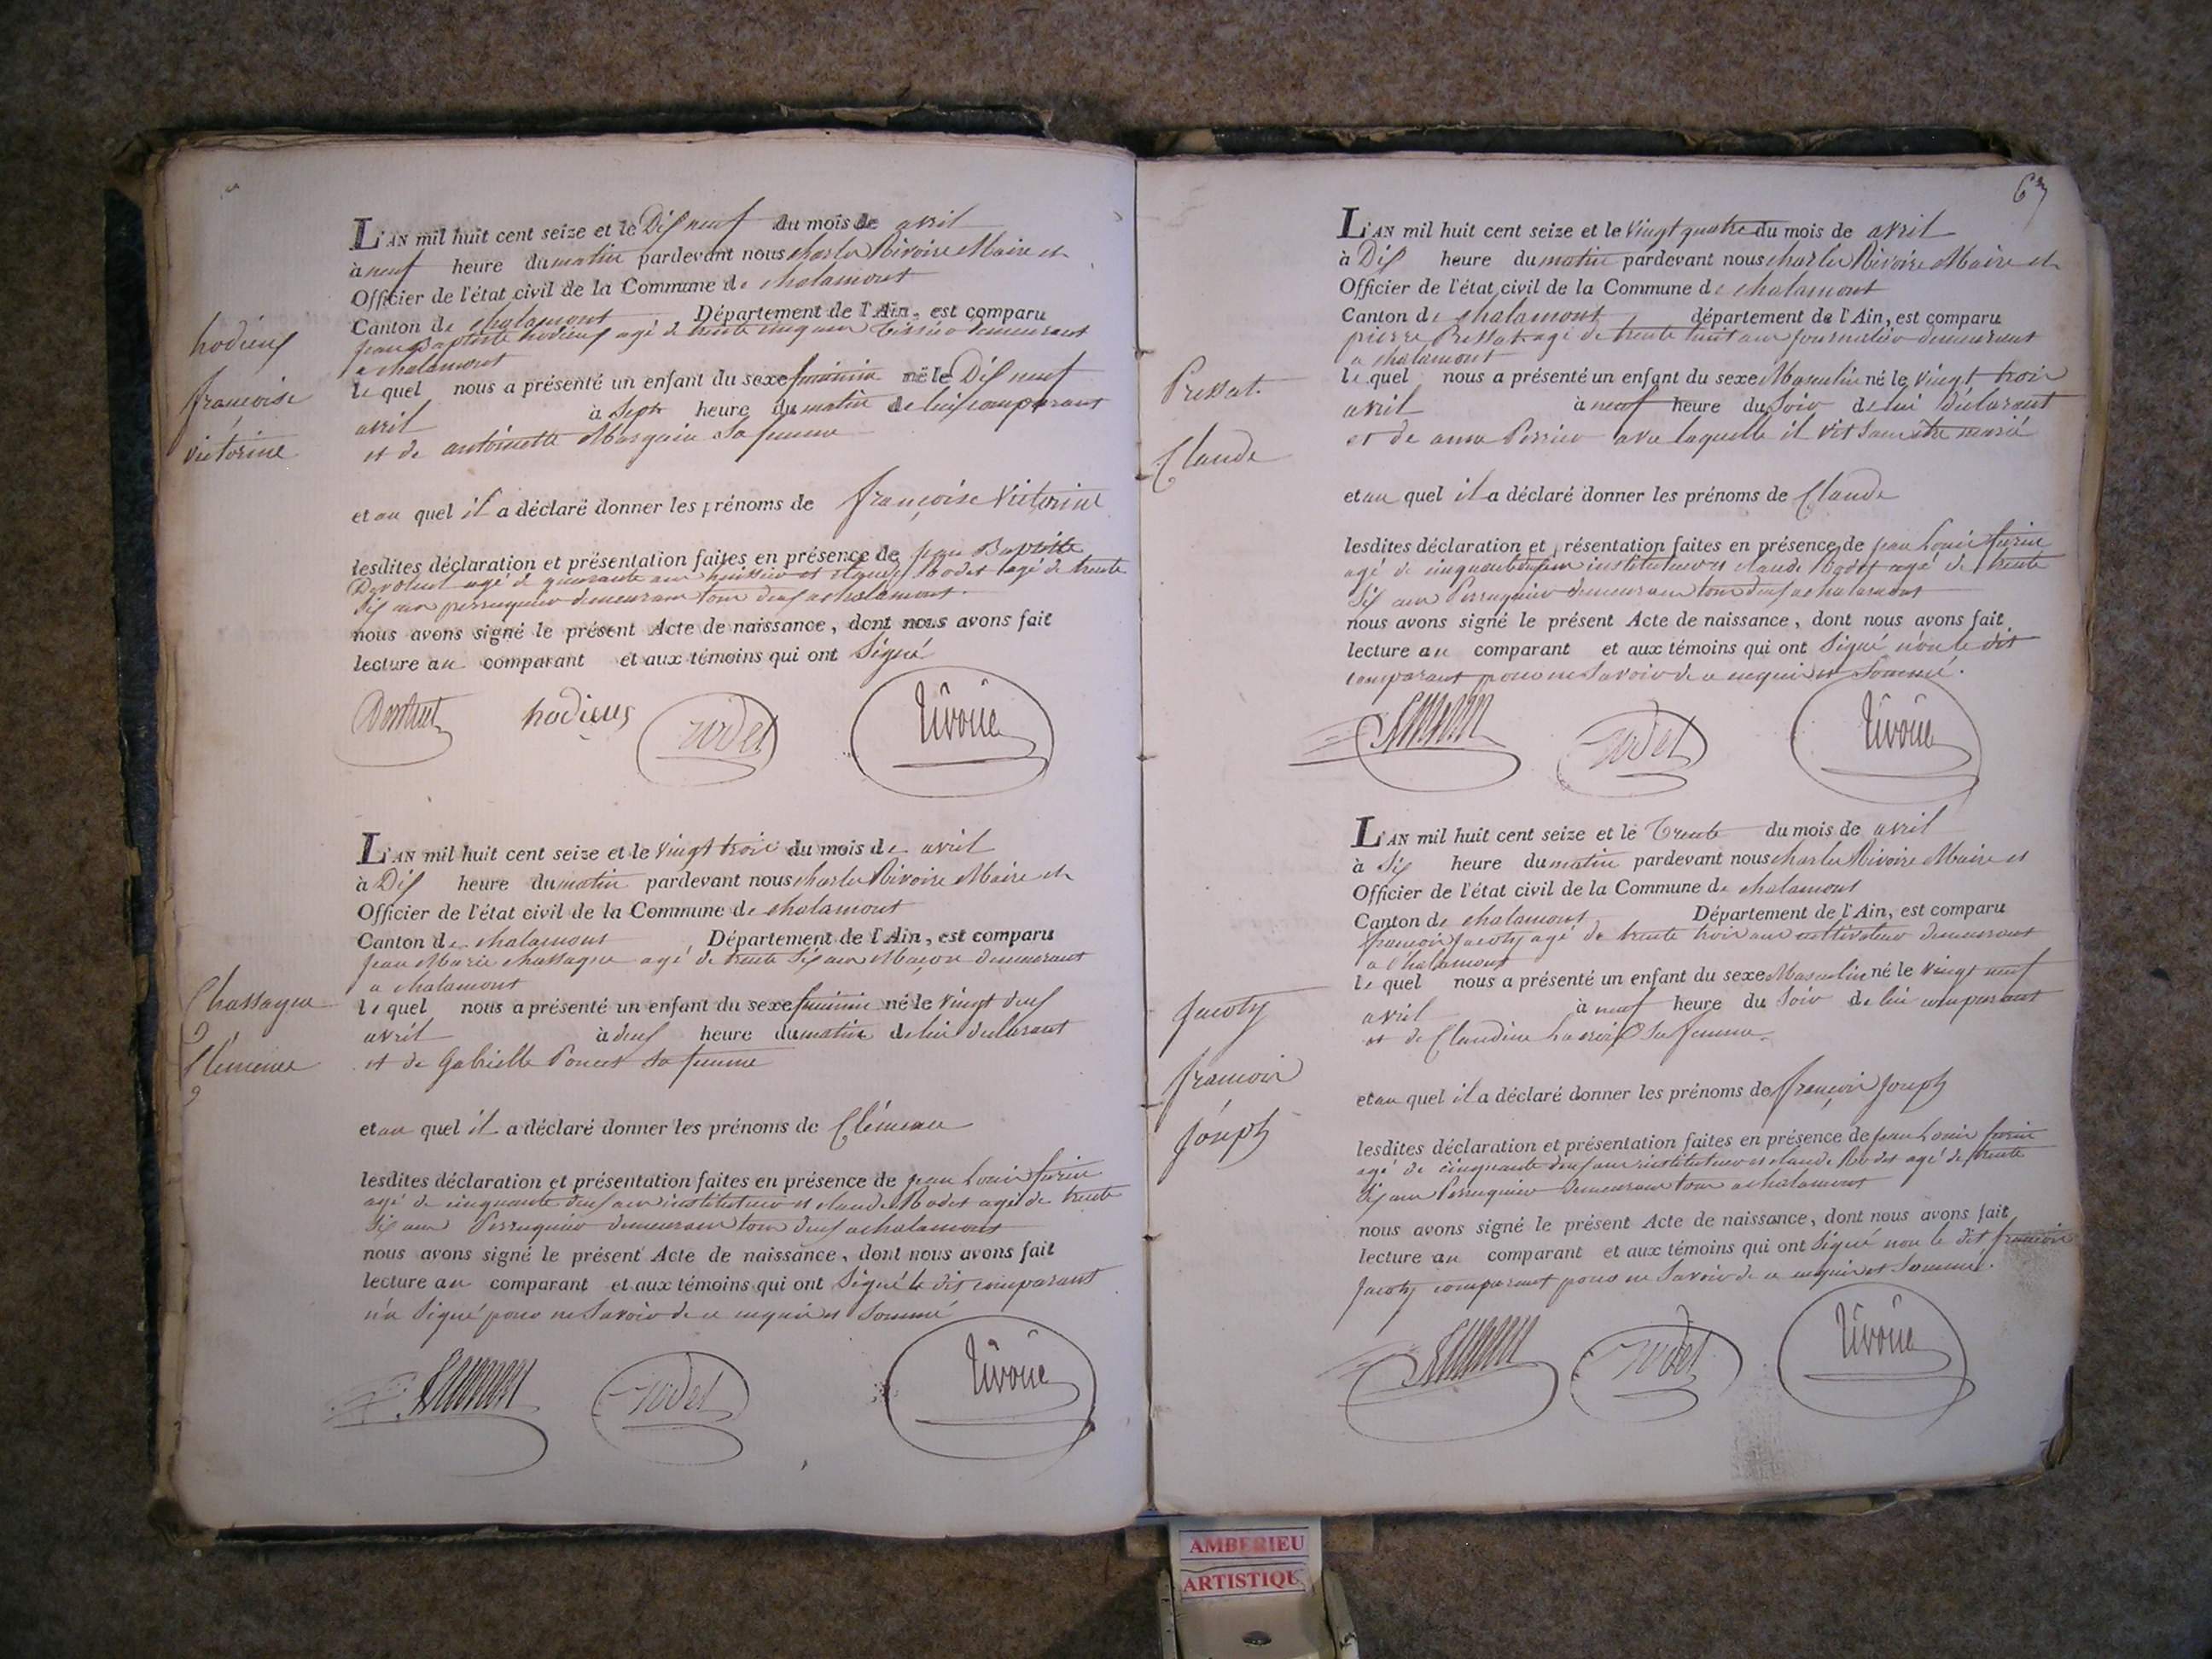 L'AN mil huit cent seize et le Dix neuf du mois de avril
à neuf heure du matin pardevant nous charles Rivoire Maire et
Officier de l'état civil de la Commune de chalamont
Canton de chalamont Département de l'Ain, est comparu
jean Baptiste hodieux agé de trente cinq ans demeurant
a chalamont
le quel nous a présenté un enfant du sexe feminin né le Dix neuf
avril à Sept heure du matin de lui comparant
et de antoinette Sa femme
et au quel il a déclaré donner les prénoms de françoise Victorine
lesdites déclaration et présentation faites en présence de jean Baptiste
agé de quarante ans huissier et claude Rodet agé de trente
Six ans perruquier demeurant tous deux a chalamont.
nous avons signé le présent Acte de naissance, dont nous avons fait
lecture au comparant et aux témoins qui ont Signé
hodieux
françoise
victorine
hodieux rodet rivoire
L'AN mil huit cent seize et le Vingt trois du mois de avril
à Dix heure du matin pardevant nous charles Rivoire Maire et
Officier de l'état civil de la Commune de chalamont
Canton de chalamont, Département de l'Ain, est comparu
jean Marie chassagne agé de trente Six ans Maçon demeurant
a chalamont
le quel nous a présenté un enfant du sexe feminin né le Vingt deux
avril à deux heure du matin de lui declarant
et de Gabrielle Poncet Sa femme
et au quel il a déclaré donner les prénoms de Clémence
lesdites déclaration et présentation faites en présence de jean Louis
agé de cinquante deux ans instituteur et claude Rodet agé de trente
Six ans Perruquier demeurant tous deux a chalamont
nous avons signé le présent Acte de naissance, dont nous avons fait
lecture au comparant et aux témoins qui ont Signé le dit comparant
n'a Signé pour ne Savoir de ce enquis et Sommé
Chassagne
Clemence
rodet rivoire
67
L'AN mil huit cent seize et le Vingt quatre du mois de avril
à Dix heure du matin pardevant nous charles Rivoire Maire et
Officier de l'état civil de la Commune de chalamont
Canton de chalamont département de l'Ain, est comparu
pierre Pressat agé de trente huit ans journalier demeurant
a chalamont
le quel nous a présenté un enfant du sexe Masculin né le Vingt trois
avril à neuf heure du Soir de lui Déclarant
et de anne Perrier avec laquelle il vit Sans etre marié
et au quel il a déclaré donner les prénoms de Claude
lesdites déclaration et présentation faites en présence de jean Louis
agé de cinquante deux ans instituteur et claude Rodet agé de trente
Six ans Perruquier demeurant tous deux a chalamont
nous avons signé le présent Acte de naissance, dont nous avons fait
lecture au comparant et aux témoins qui ont Signé non le dit
comparant pour ne Savoir de ce enquis et Sommé.
Pressat.
Claude
rodet rivoire
L'AN mil huit cent seize et le Trente du mois de avril
à Six heure du matin pardevant nous charles Rivoire Maire et
Officier de l'état civil de la Commune de chalamont
Canton de chalamont Département de l'Ain, est comparu
françois jacoty agé de trente trois ans cultivateur demeurant
a chalamont
le quel nous a présenté un enfant du sexe Masculin né le Vingt neuf
avril à neuf heure du Soir de lui comparant
et de Claudine Sa femme
et au quel il a déclaré donner les prénoms de françois joseph
lesdites déclaration et présentation faites en présence de jean Louis
agé de cinquante deux ans instituteur et claude Rodet agé de trente
Six ans Perruquier demeurant tous a chalamont
nous avons signé le présent Acte de naissance, dont nous avons fait
lecture au comparant et aux témoins qui ont Signé non le dit françois
jacoty comparant pour ne Savoir de ce enquis et Sommé.
jacoty
francois
joseph
rodet rivoire
AMBERIEU
ARTISTIQU